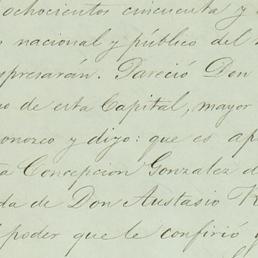 ochocientos cincuenta y
nacional y público del
presarán. Pareció Don
o de esta Capital, mayor
onozco y dijo: que es ap
a Concepcion Gonzalez d
da de Don Austasio
poder que le confirió